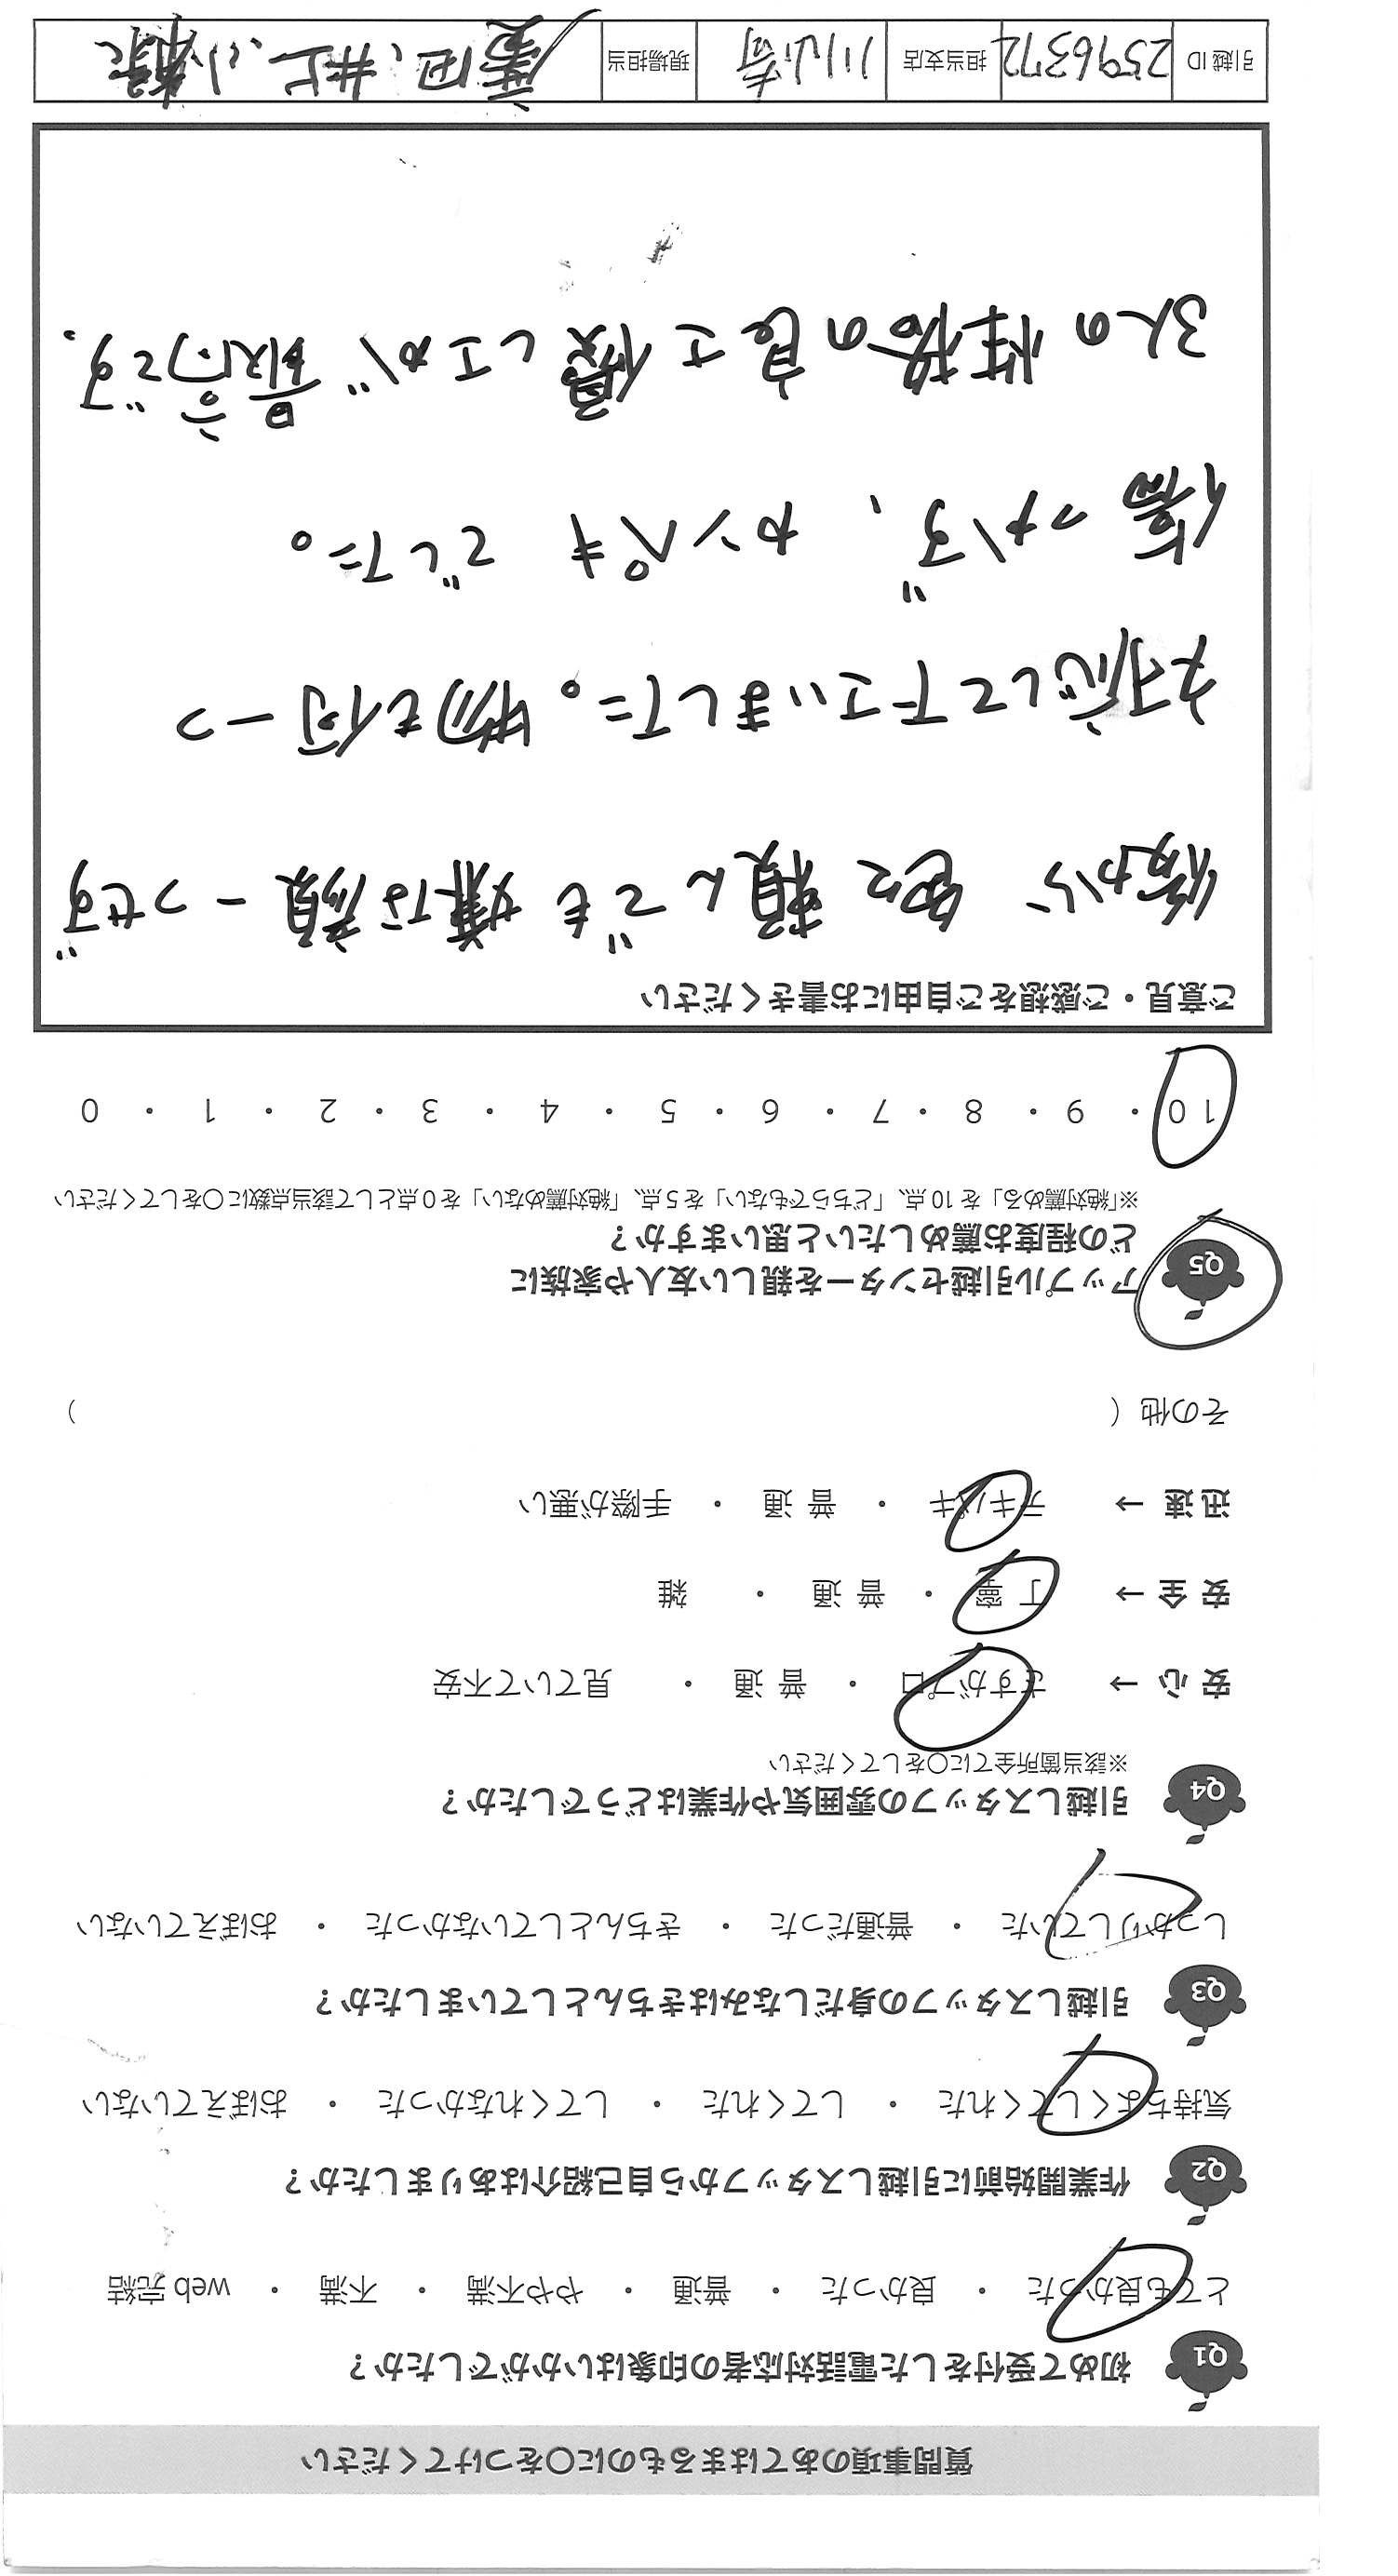 質問事項のあてはまるものに○をつけてください
Q1 初めて受付をした電話対応者の印象はいかがでしたか？
とても良かった ・ 良かった ・ 普通 ・ やや不満 ・ 不満 ・ web 完結
Q2 作業開始前に引越しスタッフから自己紹介はありましたか？
気持ちよくしてくれた ・ してくれた ・ してくれなかった ・ おぼえていない
Q3 引越しスタッフの身だしなみはきちんとしていましたか？
しっかりしていた ・ 普通だった ・ きちんとしていなかった ・ おぼえていない
Q4 引越しスタッフの雰囲気や作業はどうでしたか？
※該当箇所全てに○をしてください
安心 → さすがプロ ・ 普通 ・ 見ていて不安
安全 → 丁寧 ・ 普通 ・ 雑
迅速 → テキパキ ・ 普通 ・ 手際が悪い
その他（ ）
Q5 アップル引越センターを親しい友人や家族に
どの程度お薦めしたいと思いますか？
※「絶対薦める」を 10 点、「どちらでもない」を 5 点、「絶対薦めない」を 0 点として該当点数に○をしてください
10 ・ 9 ・ 8 ・ 7 ・ 6 ・ 5 ・ 4 ・ 3 ・ 2 ・ 1 ・ 0
ご意見・ご感想をご自由にお書きください
後から 色々 頼んでも 嫌な顔一つせず
対応して下さいました。物も何一つ
傷つかず、カンペキでした。
3人の性格の良さ優しさが最高です。
引越 ID 2596372 担当支店 川崎 現場担当 井上、小森